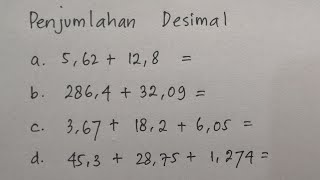 Penjumlahan Desimal
a. 5,62 + 12,8 =
b. 286,4 + 32,09 =
c. 3,67 + 18,2 + 6,05 =
d. 45,3 + 28,75 + 1,274 =